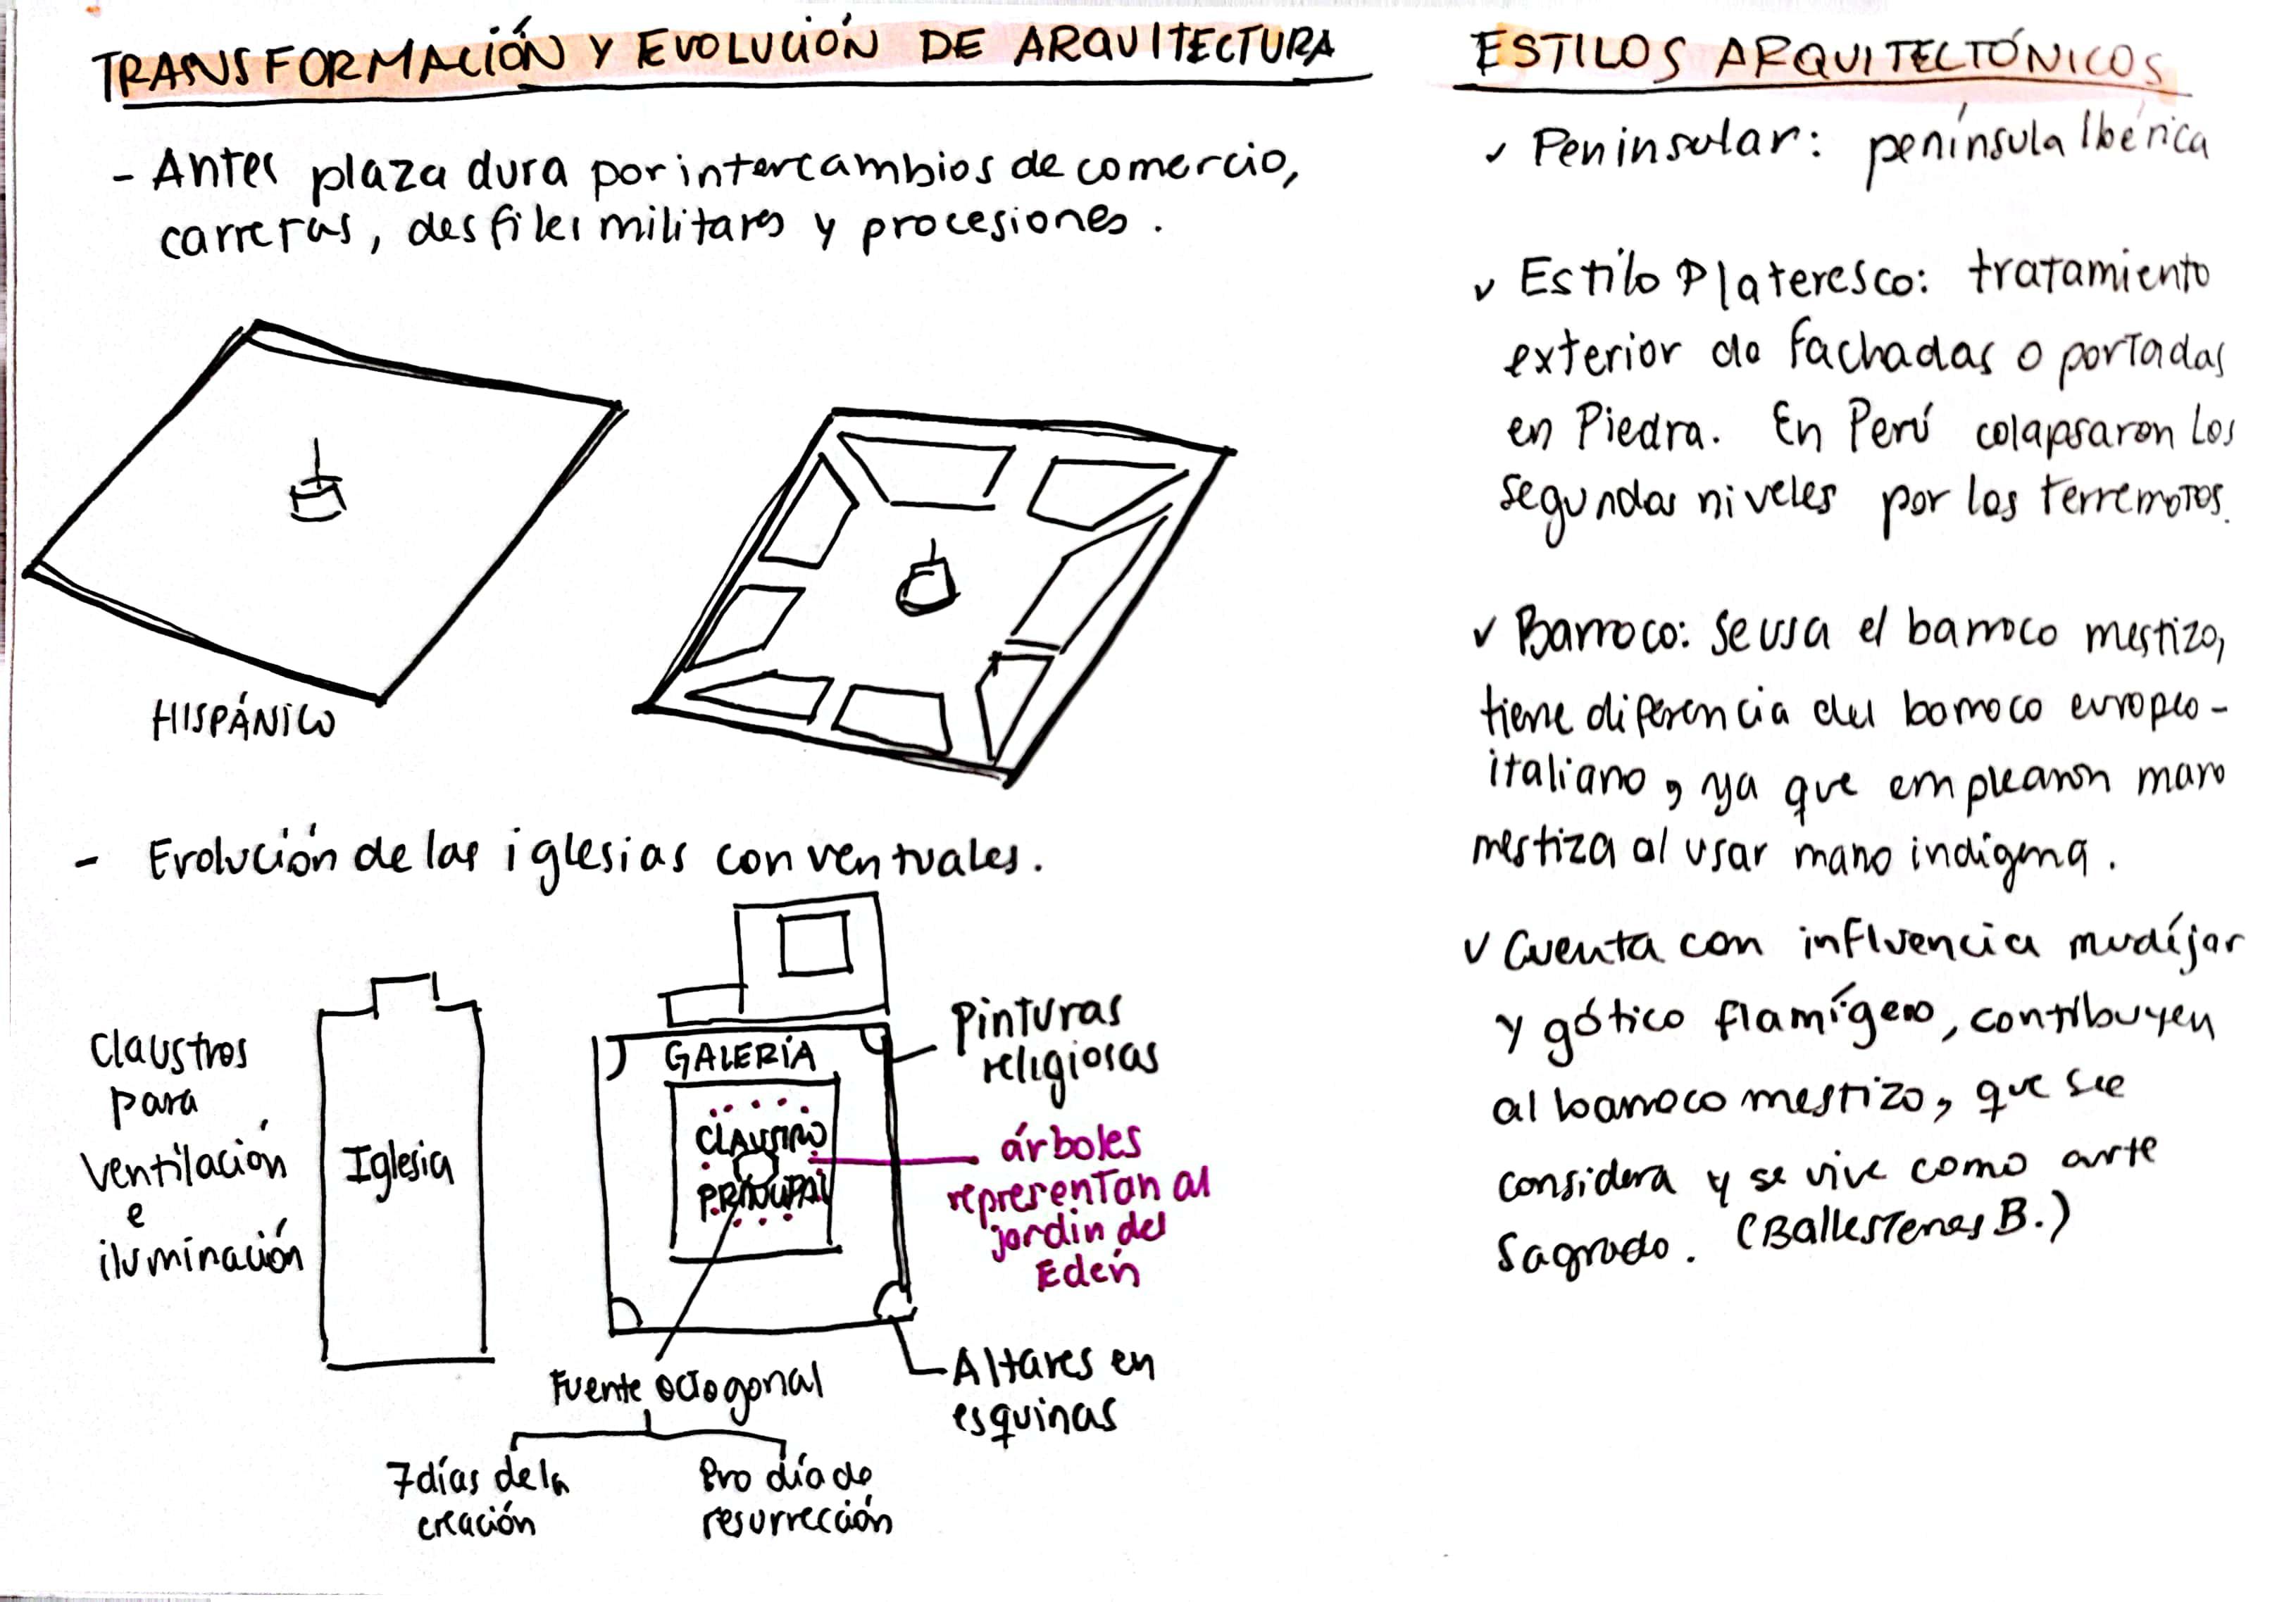 TRANSFORMACIÓN Y EVOLUCIÓN DE ARQUITECTURA
- Antes plaza dura por intercambios de comercio,
carreras, desfiles militares y procesiones.
HISPÁNICO
- Evolución de las iglesias conventuales.
Claustros
para
ventilación
e
iluminación
Iglesia
GALERÍA
CLAUSTRO
PRINCIPAL
Pinturas
religiosas
árboles
representan al
jardin del
Edén
Altares en
esquinas
Fuente octogonal
7 días de la
creación
8vo día de
resurrección
ESTILOS ARQUITECTÓNICOS
✓ Peninsular: península Ibérica
✓ Estilo Plateresco: tratamiento
exterior de fachadas o portadas
en Piedra. En Perú colapsaron los
segundos niveles por los terremotos.
✓ Barroco: Se usa el barroco mestizo,
tiene diferencia del barroco europeo-
italiano, ya que emplearon mano
mestiza al usar mano indígena.
✓ Cuenta con influencia mudéjar
y gótico flamígero, contribuyen
al barroco mestizo, que se
considera y se vive como arte
Sagrado. (Ballesteros B.)